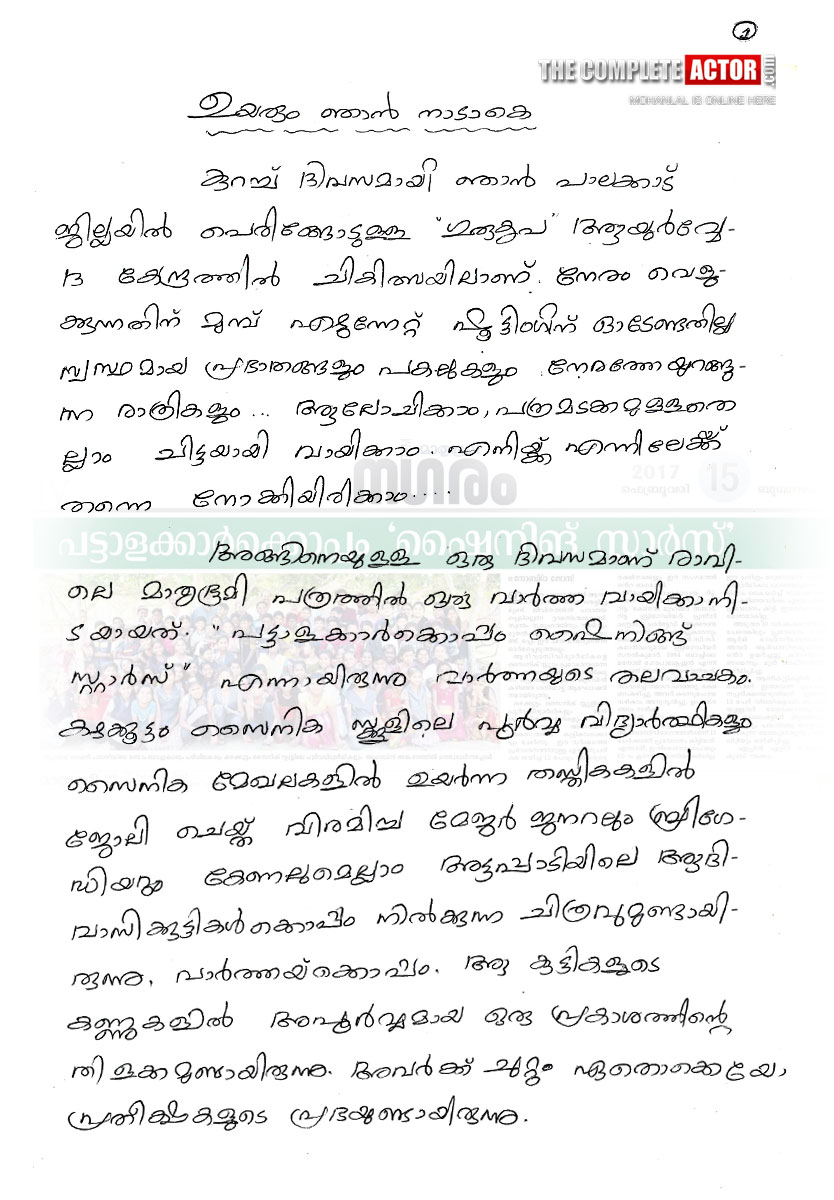 1
THE COMPLETE ACTOR .COM
MOHANLAL IS ONLINE HERE
ഉയരും ഞാൻ നാടാകെ
കുറച്ച് ദിവസമായി ഞാൻ പാലക്കാട്
ജില്ലയിൽ പെരിങ്ങോടുള്ള "ഗുരുകൃപ" ആയുർവ്വേ-
ദ കേന്ദ്രത്തിൽ ചികിത്സയിലാണ്. നേരം വെളു-
ക്കുന്നതിന് മുമ്പ് എഴുന്നേറ്റ് ഷൂട്ടിംഗിന് ഓടേണ്ടതില്ല
സ്വസ്ഥമായ പ്രഭാതങ്ങളും പകലുകളും നേരത്തേയുറങ്ങു-
ന്ന രാത്രികളും... ആലോചിക്കാം, പത്രമടക്കമുള്ളതെ
ല്ലാം ചിട്ടയായി വായിക്കാം. എനിയ്ക്ക് എന്നിലേക്ക്
തന്നെ നോക്കിയിരിക്കാം....
നഗരം
2017
ഫെബ്രുവരി
15
ബുധൻ
പട്ടാളക്കാർക്കൊപ്പം 'ഷൈനിങ് സ്റ്റാർസ്'
അങ്ങിനെയുള്ള ഒരു ദിവസമാണ് രാവി-
ലെ മാതൃഭൂമി പത്രത്തിൽ ഒരു വാർത്ത വായിക്കാനി-
ടയായത്. "പട്ടാളക്കാർക്കൊപ്പം ഷൈനിങ്ങ്
സ്റ്റാർസ്" എന്നായിരുന്നു വാർത്തയുടെ തലവാചകം.
കഴക്കൂട്ടം സൈനിക സ്കൂളിലെ പൂർവ്വ വിദ്യാർത്ഥികളും
സൈനിക മേഖലകളിൽ ഉയർന്ന തസ്തികകളിൽ
ജോലി ചെയ്ത് വിരമിച്ച മേജർ ജനറലും ബ്രിഗേ-
ഡിയറും കേണലുമെല്ലാം അട്ടപ്പാടിയിലെ ആദി-
വാസി കുട്ടികൾക്കൊപ്പം നിൽക്കുന്ന ചിത്രവുമുണ്ടായി-
രുന്നു, വാർത്തയ്ക്കൊപ്പം. ആ കുട്ടികളുടെ
കണ്ണുകളിൽ അപൂർവ്വമായ ഒരു പ്രകാശത്തിന്റെ
തിളക്കമുണ്ടായിരുന്നു. അവർക്ക് ചുറ്റും ഏതൊക്കെയോ
പ്രതീക്ഷകളുടെ പ്രഭയുണ്ടായിരുന്നു.